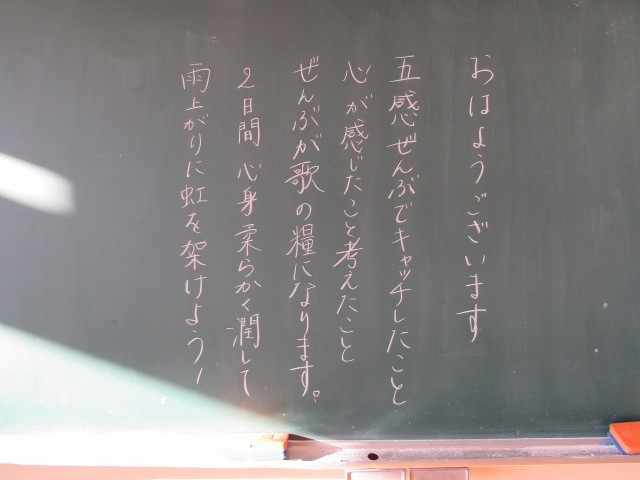 おはようございます
五感ぜんぶでキャッチしたこと
心が感じたこと考えたこと
ぜんぶが歌の糧になります。
2日間心身柔らかく潤して
雨上がりに虹を架けよう!